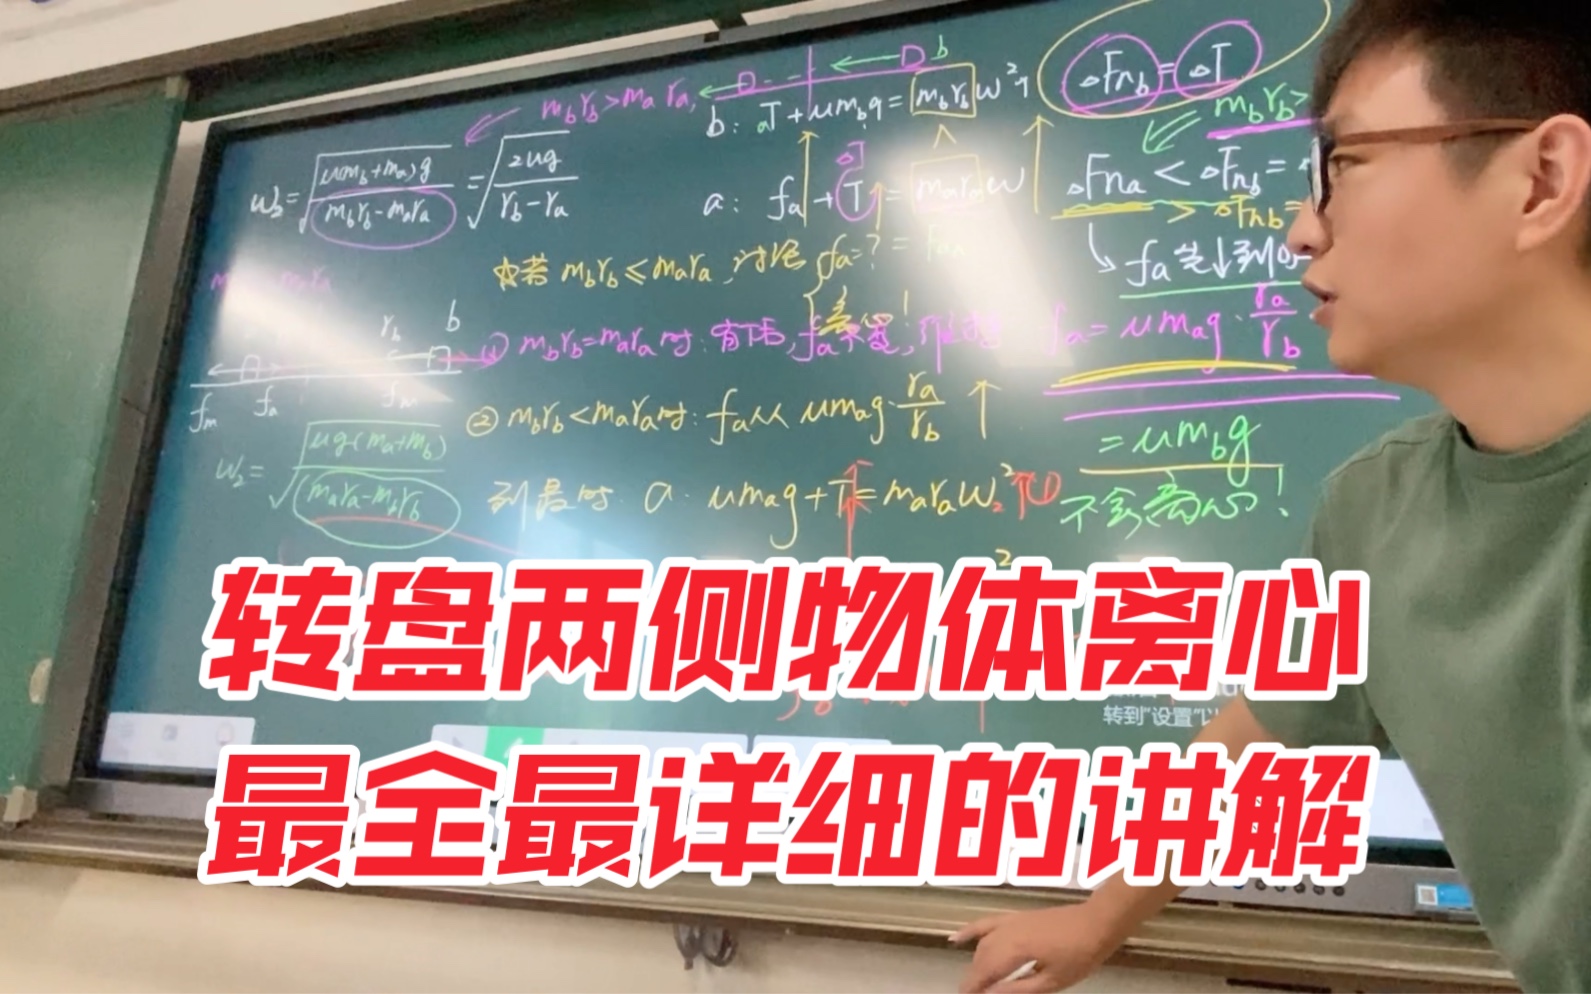 m_b r_b > m_a r_a
b
b: T + μm_b g = m_b r_b ω²↑
ΔF_nb = ΔT
ω₂ = √(μ(m_b+m_a)g / (m_b r_b − m_a r_a)) = √(2μg / (r_b − r_a))
a: f_a + T = m_a r_a ω
ΔT
m_b r_b >
ΔF_na < ΔF_nb =
> ΔF_nb =
☆若 m_b r_b ≤ m_a r_a, 讨论 f_a = ?
离心!
f_a 先↓到0
r_b b
① m_b r_b = m_a r_a 时: 有T后, f_a不变,
f_a = μm_a g · r_a / r_b
f_m f_a f_m
② m_b r_b < m_a r_a 时: f_a 从 μm_a g · r_a / r_b ↑
= μm_b g
ω₂ = √(μg(m_a+m_b) / (m_a r_a − m_b r_b))
到最 时 a: μm_a g + T = m_a r_a ω₂²↑
不会离心!
转盘两侧物体离心
转到"设置"以
最全最详细的讲解